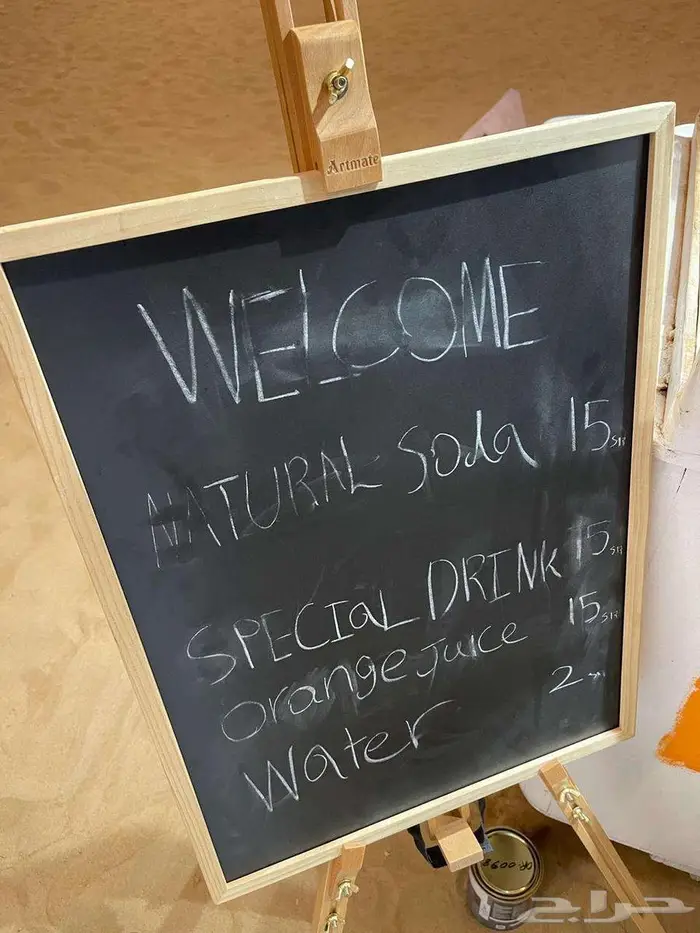 Artmate
WELCOME
NATURAL Soda 15 SR
SPECIAL DRINK 15 SR
orange juice 15 SR
water 2
حراج